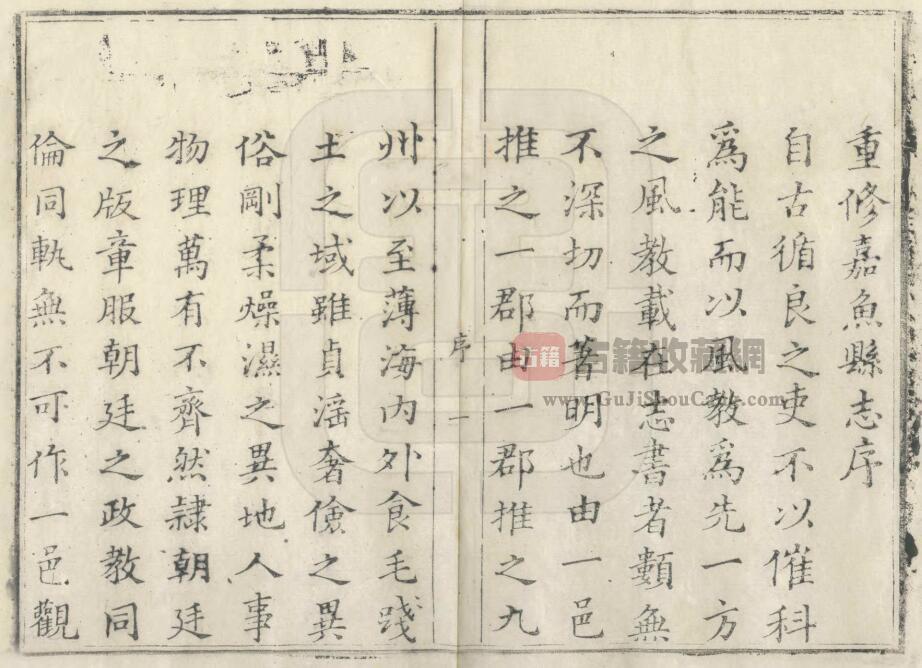 重修嘉魚縣志序
自古循良之吏不以催科
爲能而以風教爲先一方
之風教載在志書者顭無
不深切而著明也由一邑
推之一郡由一郡推之九
序 一
州以至薄海内外食毛踐
土之域雖貞滛奢儉之異
俗剛柔燥濕之異地人事
物理萬有不齊然隷朝廷
之版章服朝廷之政教同
倫同軌無不可作一邑觀
古籍
古籍收藏網
www.GuJiShouCang.com